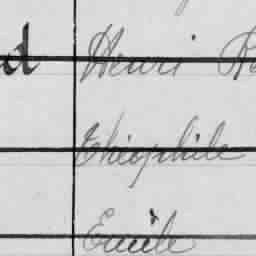 d Henri
Théophile
Emile